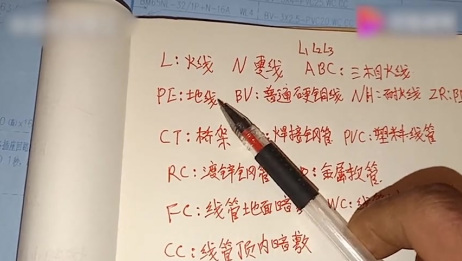 L1L2L3
L:火线 N零线 ABC:三相火线
PE:地线 BV:普通硬铜线 NH:耐火线 ZR:
CT:桥架 :焊接钢管 PVC:塑料线管
RC:渡锌钢管 :金属软管
FC:线管地面暗敷 WC:线
CC:线管顶内暗敷